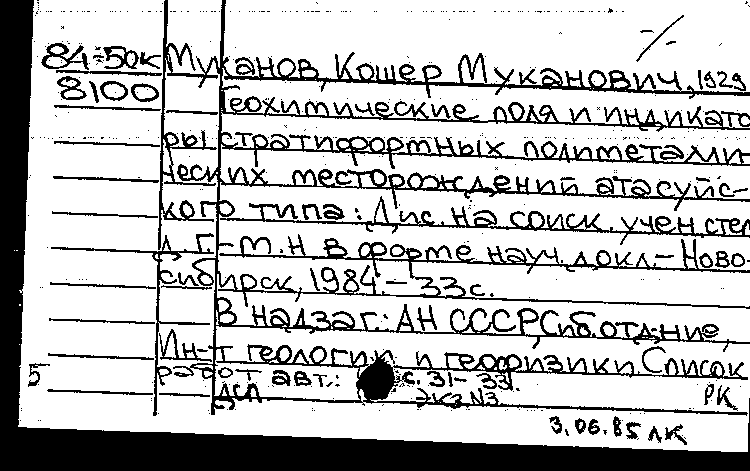 84-50к Муканов, Кошер Муканович, 1929
8100 Геохимические поля и индикато
ры стратифортных полиметалли-
ческих месторождений атасуйс-
кого типа: Дис. на соиск. учен. стел
д. г.-м. н в форме науч. докл.- Ново-
сибирск, 1984.- 33 с.
В надзаг.: АН СССР, Сиб. отд-ние,
Ин-т геологии и геофизики. Список
5 работ авт.: с. 31-33. РК
ДСП экз N3
3.06.85 лк